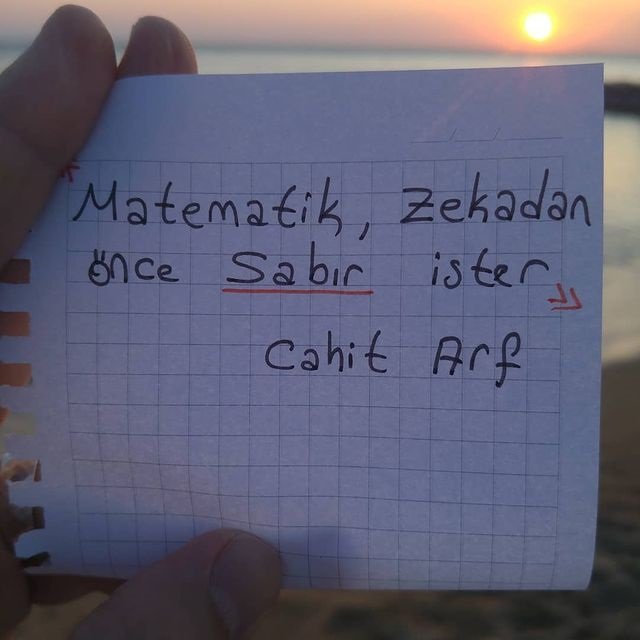 Matematik, Zekadan
önce Sabır ister
Cahit Arf